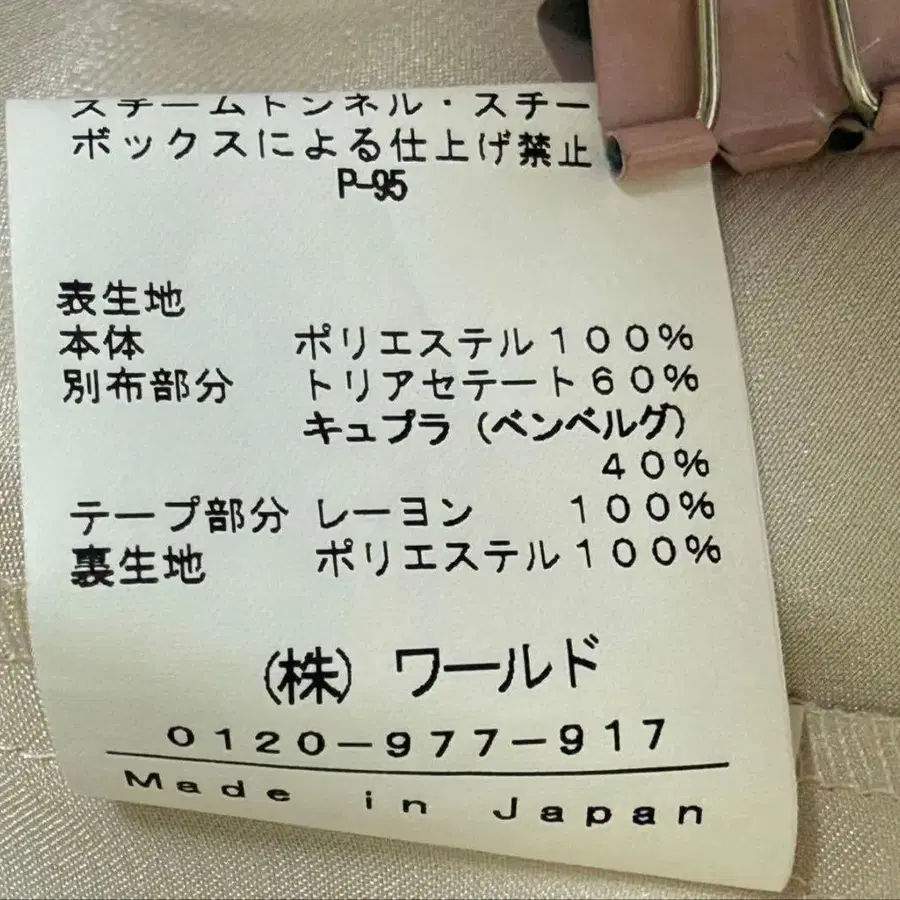 スチームトンネル・スチー
ボックスによる仕上げ禁止
P-95
表生地
本体 ポリエステル100%
別布部分 トリアセテート60%
キュプラ(ベンベルグ)
40%
テープ部分 レーヨン 100%
裏生地 ポリエステル100%
(株) ワールド
0120-977-917
Made in Japan